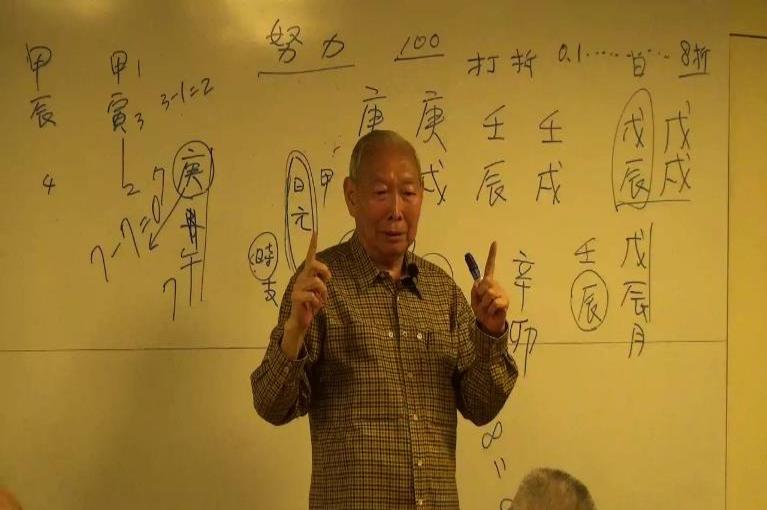 努力 100 打折 0.1…… 8折
甲 甲1 3-1=2
辰 寅3
4 2
7-7=0 庚
午
7
庚 庚 壬 壬 戊 戊
戌 辰 戌 辰 戌
日元 甲
時支
辛 壬 戊
卯 辰 辰
月
8
=